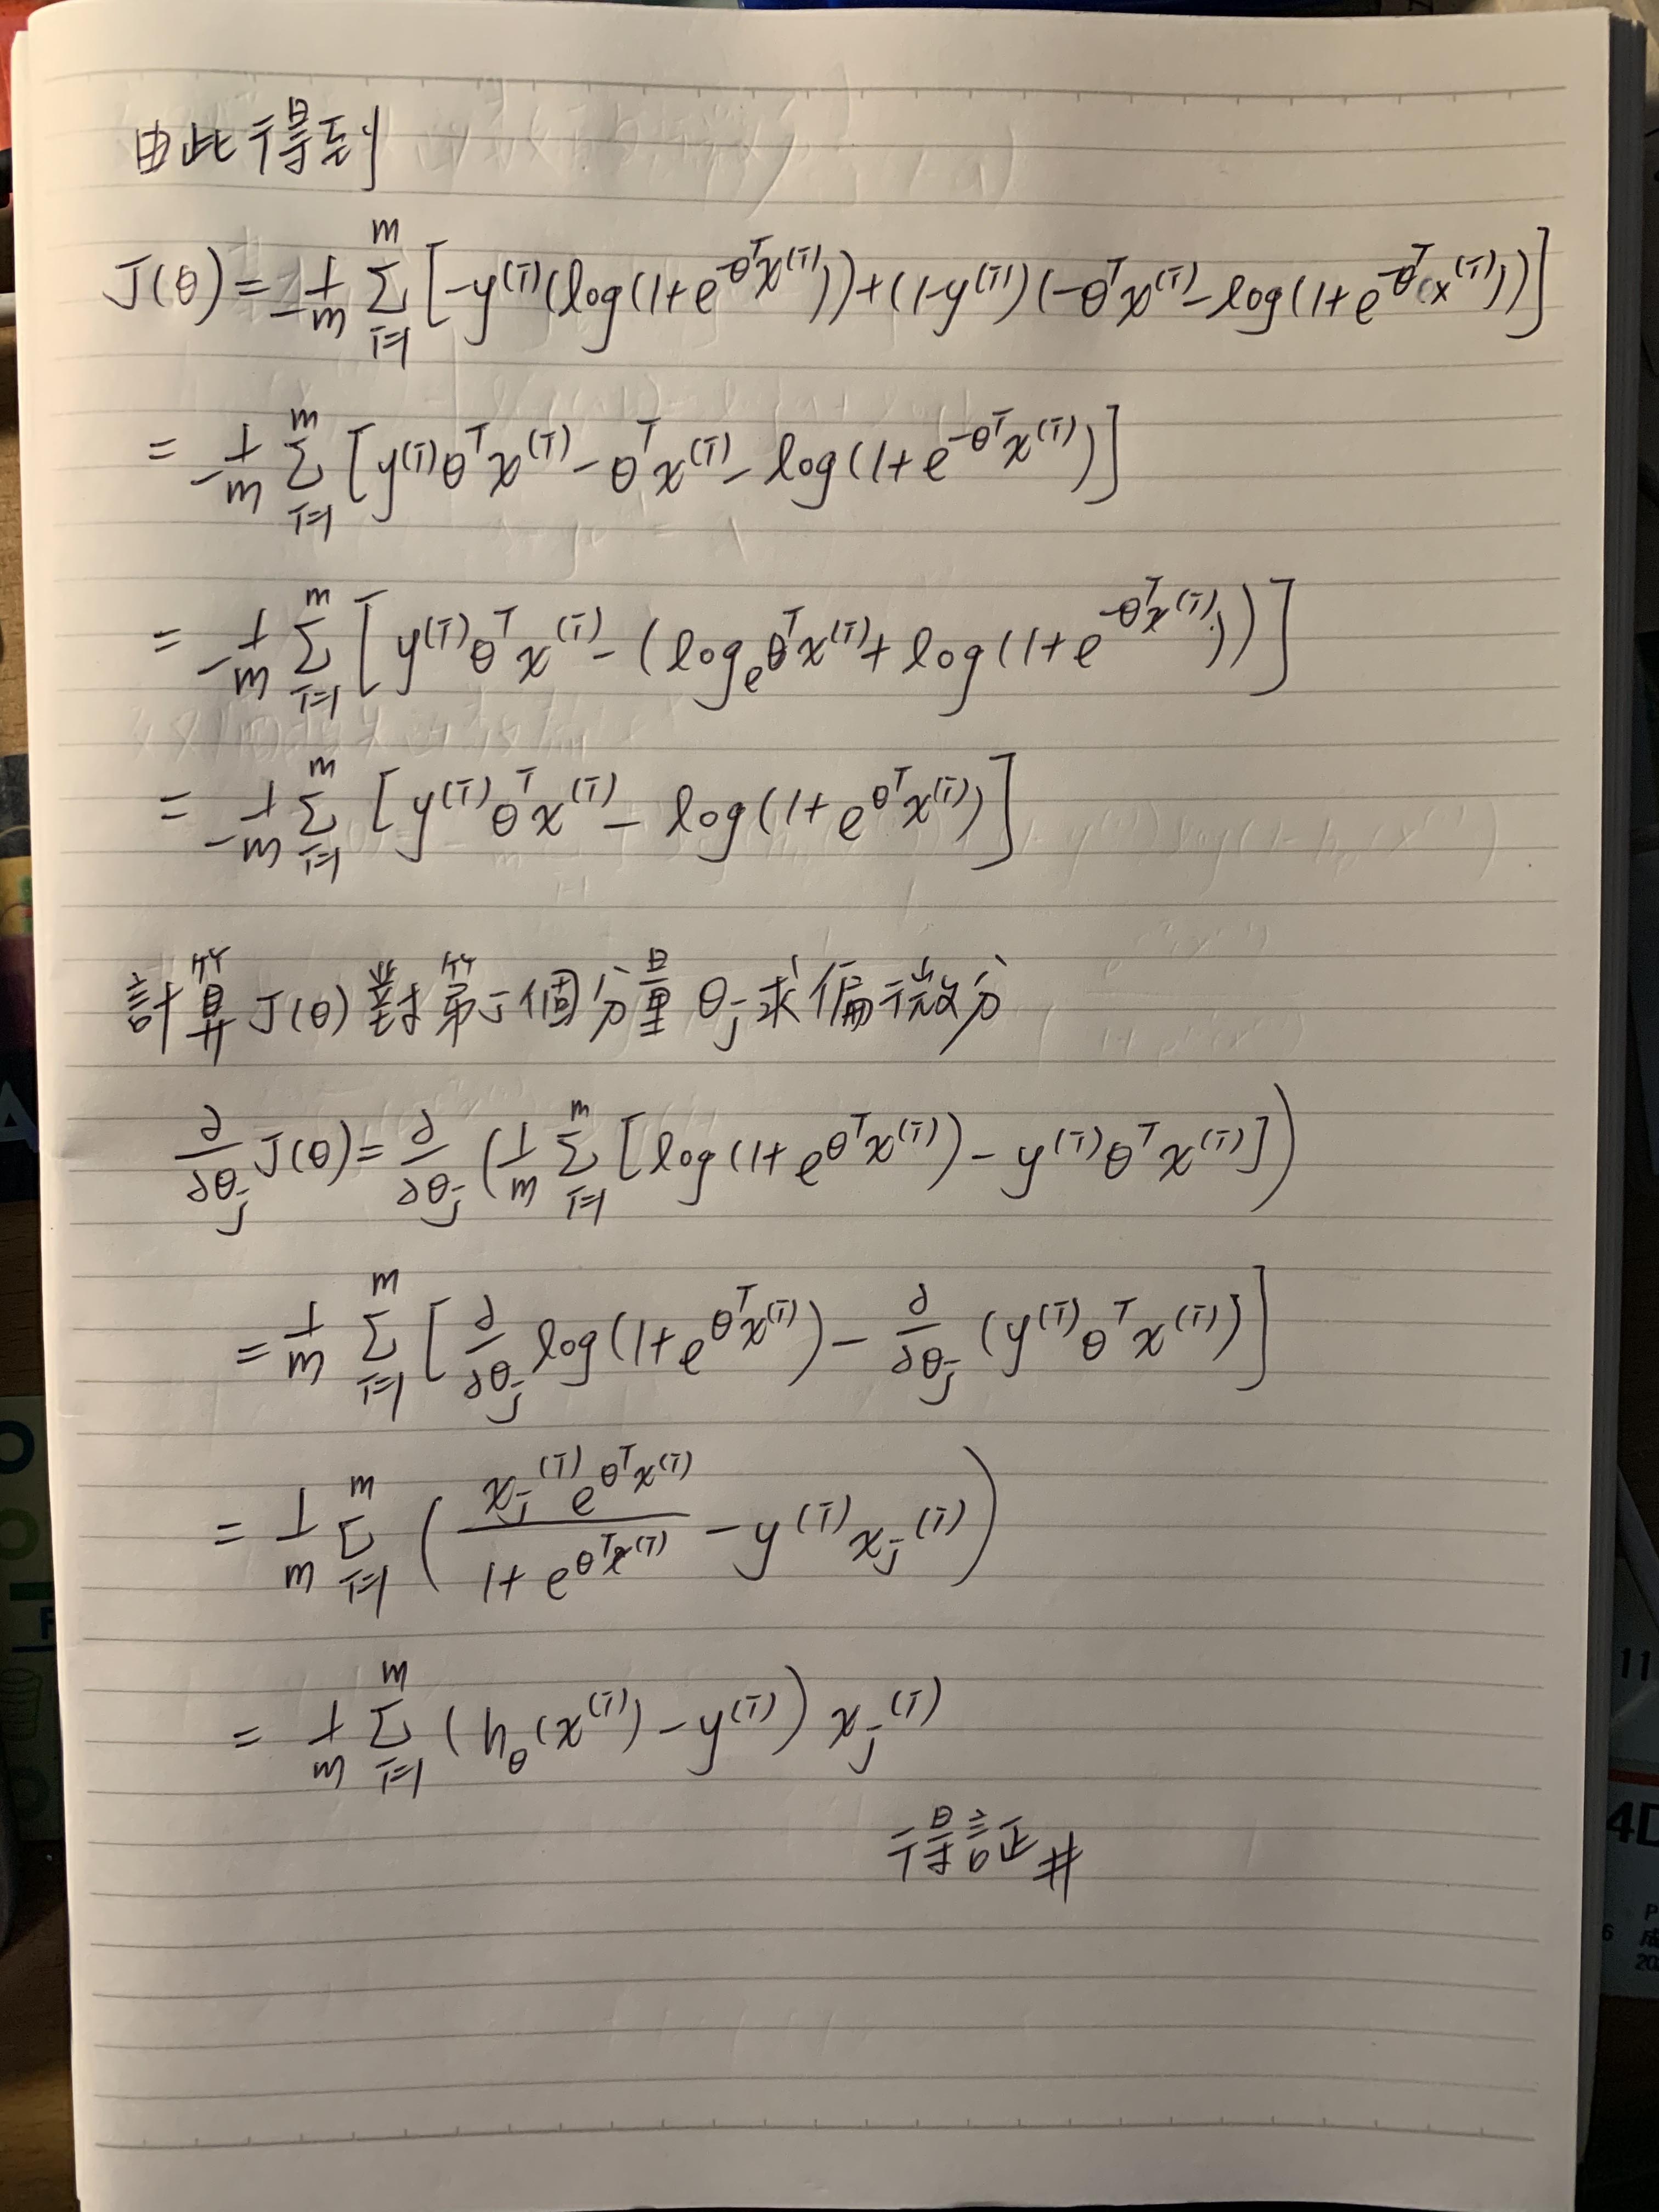 由此得到
J(θ) = -1/m Σ_{i=1}^{m} [-y^{(i)}(log(1+e^{-θ^T x^{(i)}})) + (1-y^{(i)})(-θ^T x^{(i)} - log(1+e^{-θ^T x^{(i)}}))]
= -1/m Σ_{i=1}^{m} [y^{(i)}θ^T x^{(i)} - θ^T x^{(i)} - log(1+e^{-θ^T x^{(i)}})]
= -1/m Σ_{i=1}^{m} [y^{(i)}θ^T x^{(i)} - (log_e θ^T x^{(i)} + log(1+e^{-θ^T x^{(i)}}))]
= -1/m Σ_{i=1}^{m} [y^{(i)}θ^T x^{(i)} - log(1+e^{θ^T x^{(i)}})]
計算J(θ)對第j個分量θ_j求偏微分
∂/∂θ_j J(θ) = ∂/∂θ_j (1/m Σ_{i=1}^{m} [log(1+e^{θ^T x^{(i)}}) - y^{(i)}θ^T x^{(i)}])
= 1/m Σ_{i=1}^{m} [∂/∂θ_j log(1+e^{θ^T x^{(i)}}) - ∂/∂θ_j (y^{(i)}θ^T x^{(i)})]
= 1/m Σ_{i=1}^{m} (x_j^{(i)} e^{θ^T x^{(i)}} / 1+e^{θ^T x^{(i)}} - y^{(i)} x_j^{(i)})
= 1/m Σ_{i=1}^{m} (h_θ(x^{(i)}) - y^{(i)}) x_j^{(i)}
得證#
11
4D